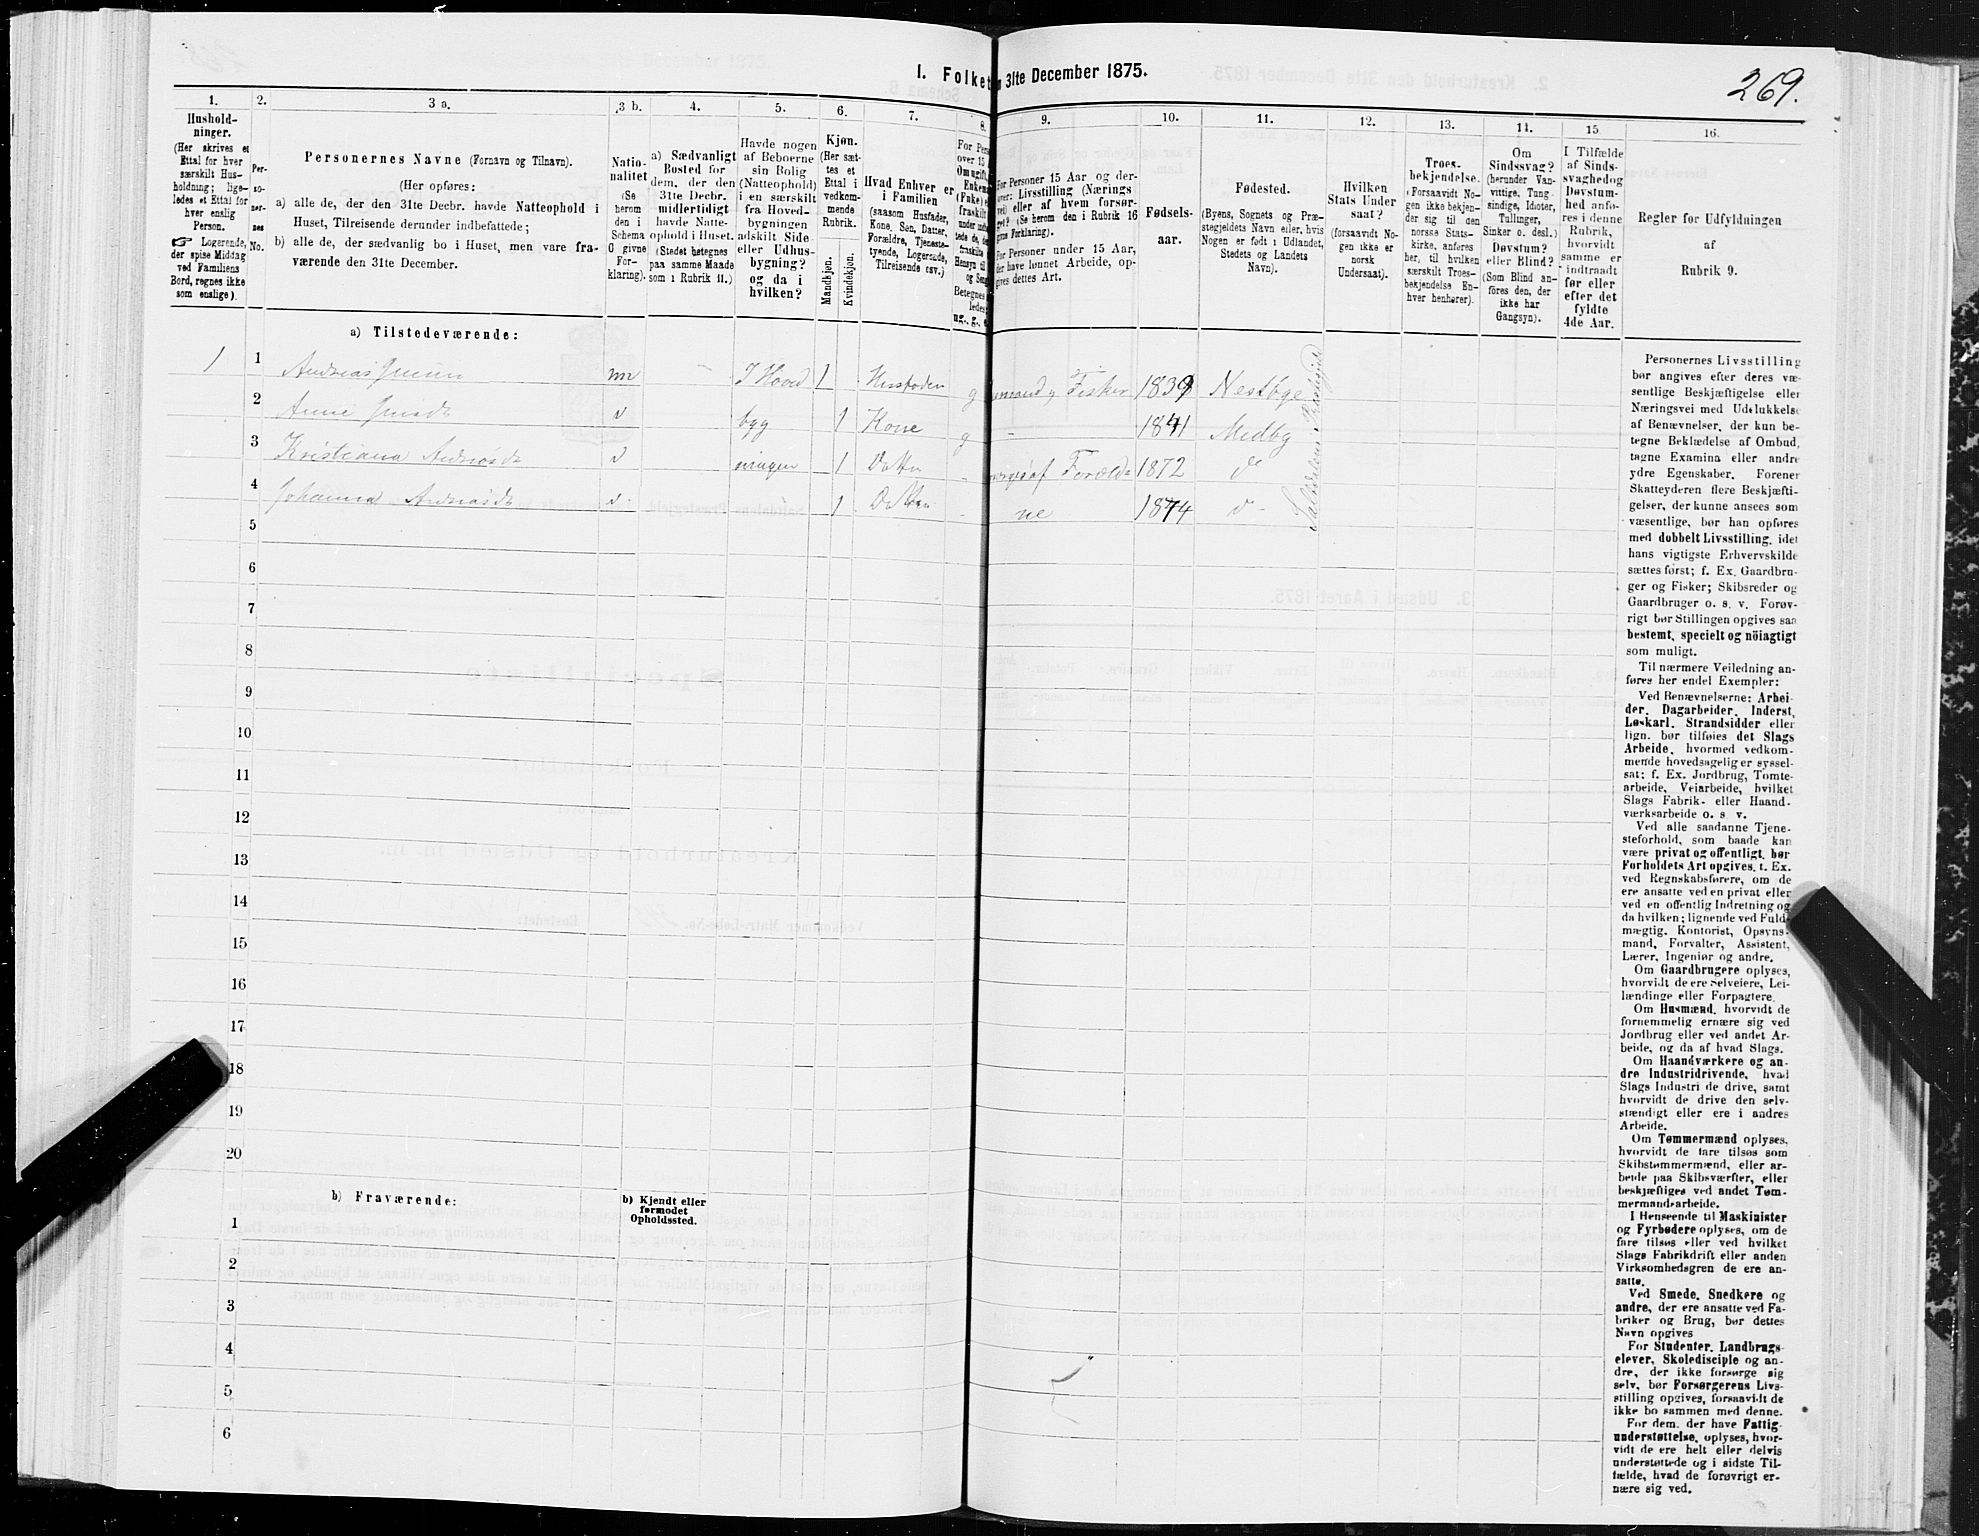 1. Folket
n 31te December 1875.
269.
1.
Hushold-
ninger.
(Her skrives et
Ettal for hver
særskilt Hus-
holdning; lige-
ledes et Ettal for
hver enslig
Person.
☞ Logerende,
der spise Middag
ved Familiens
Bord, regnes ikke
som enslige).
2.
Per-
so-
ner-
nes
No.
3 a.
Personernes Navne (Fornavn og Tilnavn).
(Her opføres:
a) alle de, der den 31te Decbr. havde Natteophold i
Huset, Tilreisende derunder indbefattede;
b) alle de, der sædvanlig bo i Huset, men vare fra-
værende den 31te December.
3 b.
Natio-
nalitet
(Se
herom
den i
Schema
O givne
For-
klaring).
4.
a) Sædvanligt
Bosted for
dem, der den
31te Decbr.
midlertidigt
havde Natte-
ophold i Huset.
(Stedet betegnes
paa samme Maade
som i Rubrik 11.)
5.
Havde nogen
af Beboerne
sin Bolig
(Natteophold)
i en særskilt
fra Hoved-
bygningen
adskilt Side-
eller Udhus-
bygning?
og da i
hvilken?
6.
Kjøn.
(Her sæt-
tes et
Ettal i
vedkom-
mende
Rubrik.
Mandkjøn.
Kvindekjøn.
7.
Hvad Enhver er
i Familien
(saasom Husfader,
Kone, Søn, Datter,
Forældre, Tjeneste-
tyende, Logerende,
Tilreisende osv.)
8.
For Pers
over 15
Om ugift,
Enkem
(Enke) e
fraskilt
ug., g., e.
9.
For Personer 15 Aar og der-
over: Livsstilling (Nærings
vei) eller af hvem forsør-
get? (Se herom den i Rubrik 16
givne Forklaring).
For Personer under 15 Aar,
der have lønnet Arbeide, op-
gives dettes Art.
10.
Fødsels-
aar.
11.
Fødested.
(Byens, Sognets og Præ-
stegjeldets Navn eller, hvis
Nogen er født i Udlandet,
Stedets og Landets
Navn).
12.
Hvilken
Stats Under
saat?
(forsaavidt No-
gen ikke er
norsk
Undersaat).
13.
Troes-
bekjendelse.
(Forsaavidt No-
gen ikke bekjen-
der sig til den
norske Stats-
kirke, anføres
her, til hvilken
særskilt Troes-
bekjendelse En-
hver henhører).
14.
Om
Sindssvag?
(herunder Van-
vittige, Tung-
sindige, Idioter,
Tullinger,
Sinker o. desl.)
Døvstum?
eller Blind?
(Som Blind an-
føres den, der
ikke har
Gangsyn).
15
I Tilfælde
af Sinds-
svaghed og
Døvstum-
hed anfø-
res i denne
Rubrik,
hvorvidt
samme er
indtraadt
før eller
efter det
fyldte
4de Aar.
16.
Regler for Udfyldningen
af
Rubrik 9.
a) Tilstedeværende:
1 1 Andreas nn - I Hoved 1 Husfader g Fisker 1839 Nestbye
2 Anne d bygg 1 Kone g - 1841 Medby
3 Kristiana Andreasdt d ningen 1 Datter - af Foræld= 1872 do
4 Johanna Andreasdt d. 1 Datter - ne 1874 d-
5
6
7
8
9
10
11
12
13
14
15
16
17
18
19
20
b) Fraværende:
b) Kjendt eller
formodet
Opholdssted.
1
2
3
4
5
6
Personernes Livsstilling
bør angives efter deres væ-
sentlige Beskjæftigelse eller
Næringsvei med Udelukkelse
af Benævnelser, der kun be-
tegne Beklædelse af Ombud,
tagne Examina eller andre
ydre Egenskaber. Forener
Skatteyderen flere Beskjæfti-
gelser, der kunne ansees som
væsentlige, bør han opføres
med dobbelt Livsstilling, idet
hans vigtigste Erhvervskilde
sættes først; f. Ex. Gaardbru-
ger og Fisker; Skibsreder og
Gaardbruger o. s. v. Forøv-
rigt bør Stillingen opgives saa
bestemt, specielt og nöiagtigt
som muligt.
Til nærmere Veiledning an-
føres her endel Exempler:
Ved Benævnelserne: Arbei-
der, Dagarbeider, Inderst,
Løskarl, Strandsidder eller
lign. bør tilføies det Slags
Arbeide, hvormed vedkom-
mende hovedsagelig er syssel-
sat; f. Ex. Jordbrug, Tomte-
arbeide, Veiarbeide, hvilket
Slags Fabrik- eller Haand-
værksarbeide o. s. v.
Ved alle saadanne Tjene-
steforhold, som baade kan
være privat og offentligt, bør
Forholdets Art opgives, t. Ex.
ved Regnskabsførere, om de
ere ansatte ved en privat eller
ved en offentlig Indretning og
da hvilken; lignende ved Fuld-
mægtig, Kontorist, Opsyns-
mand, Forvalter, Assistent,
Lærer, Ingeniør og andre.
Om Gaardbrugere oplyses,
hvorvidt de ere Selveiere, Lei-
lændinge eller Forpagtere.
Om Husmænd, hvorvidt de
fornemmelig ernære sig ved
Jordbrug eller ved andet Ar-
beide, og da af hvad Slags.
Om Haandværkere og an-
dre Industridrivende, hvad
Slags Industri de drive, samt
hvorvidt de drive den selv-
stændigt eller ere i andres
Arbeide.
Om Tømmermænd oplyses,
hvorvidt de fare tilsøs som
Skibstømmermænd, eller ar-
beide paa Skibsværfter, eller
beskjæftiges ved andet Tøm-
mermandsarbeide.
I Henseende til Maskinister
og Fyrbødere oplyses, om de
fare tilsøs eller ved hvilket
Slags Fabrikdrift eller anden
Virksomhedsgren de ere an-
satte.
Ved Smede, Snedkere og
andre, der ere ansatte ved Fa-
briker og Brug, bør dettes
Navn opgives
For Studenter, Landbrugs-
elever, Skoledisciple og an-
dre, der ikke forsørge sig
selv, bør Forsørgerens Livs-
stilling opgives, forsaavidt de
ikke bo sammen med denne.
For dem, der have Fattig-
understøttelse, oplyses, hvor-
vidt de ere helt eller delvis
understøttede og i sidste Til-
fælde, hvad de forøvrigt er-
nære sig ved.